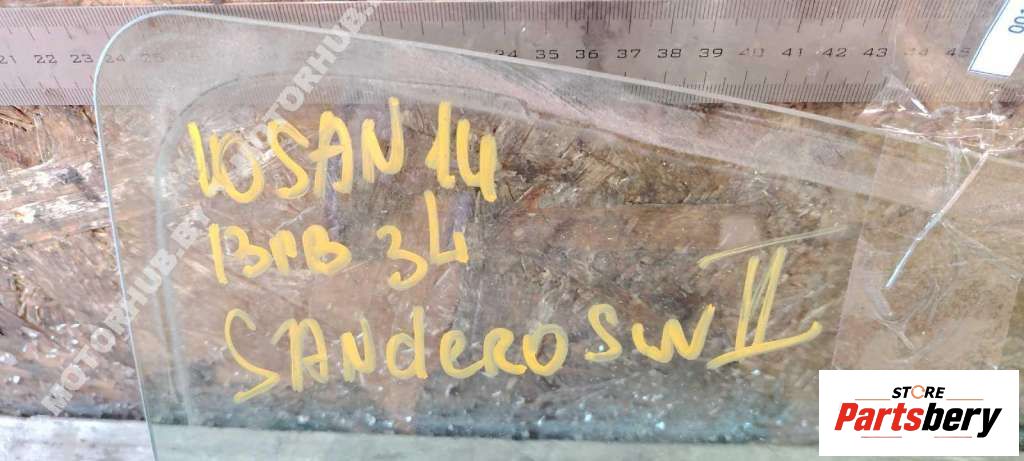 21 22 23 24 25 34 35 36 37 38 39 40 41 42 43 44 45
00:
LOSAN 14
13PB 34
SANdERO SW II
MOTORHUB.BY MOTORHUB.
STORE
Partsbery